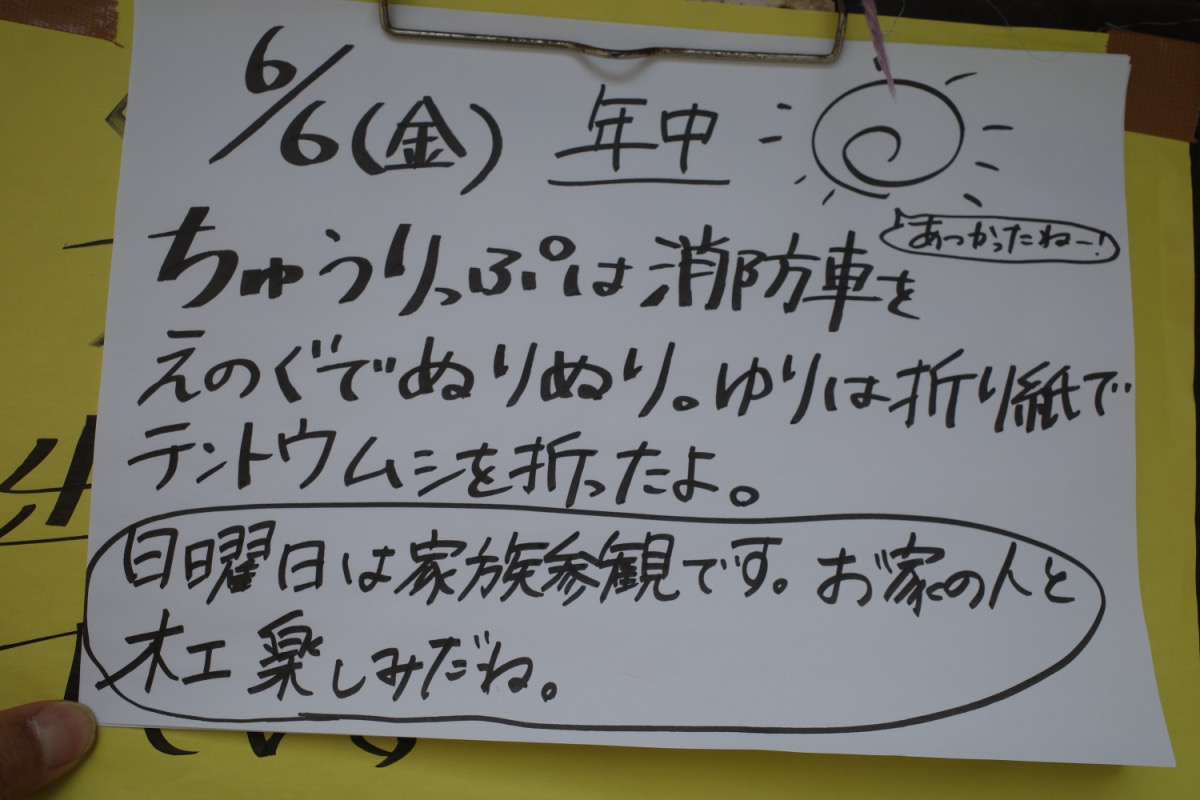 6/6(金) 年中
あつかったねー!
ちゅうりっぷは消防車を
えのぐでぬりぬり。ゆりは折り紙で
テントウムシを折ったよ。
日曜日は家族参観です。お家の人と
木工楽しみだね。